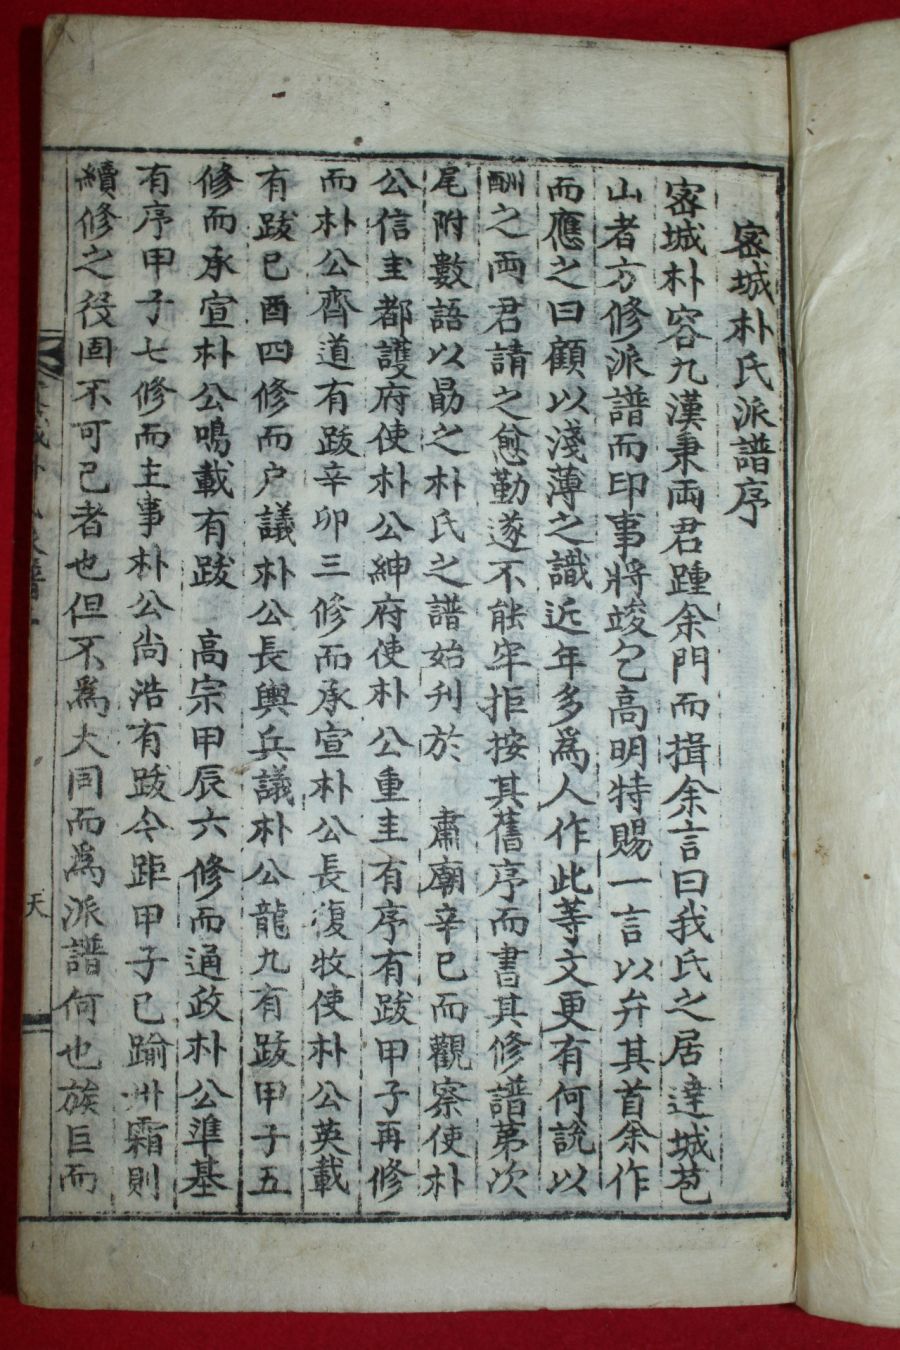 密城朴氏派譜序
密城朴容九漢秉兩君踵余門而揖余言曰我氏之居達城苞
山者方修派譜而印事將竣乞高明特賜一言以弁其首余作
而應之曰顧以淺薄之識近年多爲人作此等文更有何說以
酬之兩君請之愈勤遂不能牢拒按其舊序而書其修譜第次
尾附數語以勗之朴氏之譜始刋於 肅廟辛巳而觀察使朴
公信圭都護府使朴公紳府使朴公重圭有序有跋甲子再修
而朴公齊道有跋辛卯三修而承宣朴公長復牧使朴公英載
有跋己酉四修而户議朴公長輿兵議朴公龍九有跋甲子五
修而承宣朴公鳴載有跋 高宗甲辰六修而通政朴公準基
有序甲子七修而主事朴公尚浩有跋今距甲子已踰卅霜則
續修之役固不可已者也但不爲大同而爲派譜何也族巨而
天